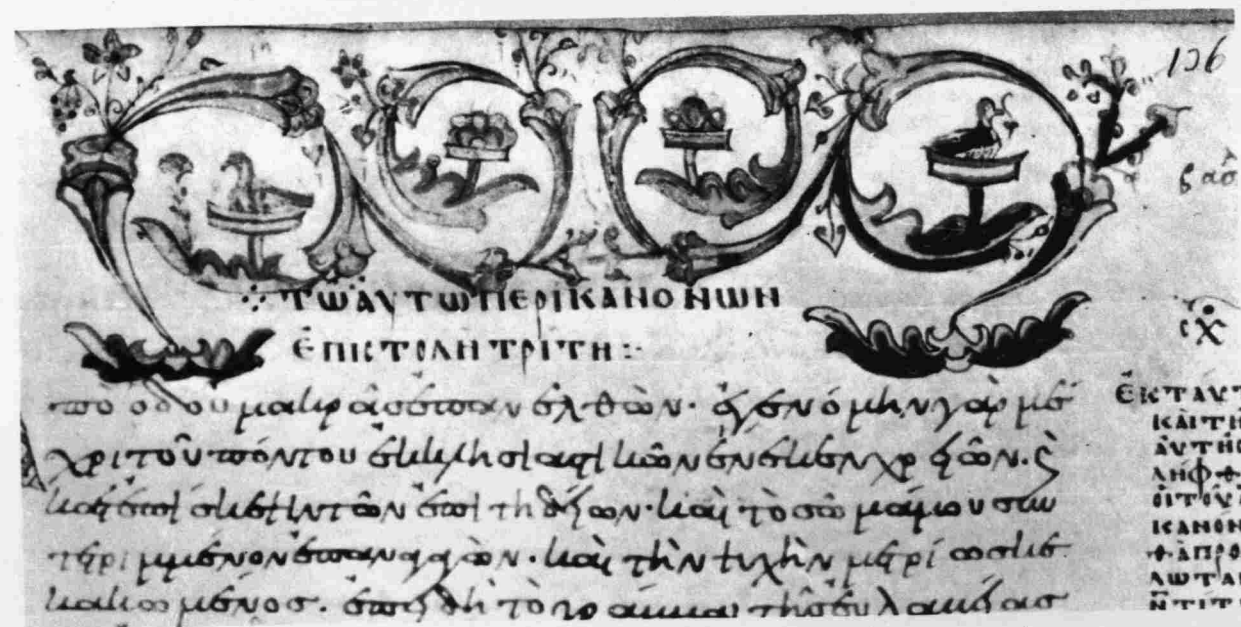 136
βασ
ΤΩ ἈΥΤΩ ΠΕΡΙ ΚΑΝΟΝΩΝ
ἘΠΙΣΤΟΛΗ ΤΡΙΤΗ :·
πο ὁδοῦ μακρᾶς ἐπανελθὼν· ἐγενόμην γὰρ μέ
χρι τοῦ πόντου ἐκκλησιαστικῶν ἕνεκεν χρειῶν· ϛ
κατ ἐπίσκεψιν τῶν ἐπιτηδείων· καὶ τὸ σῶμά μου συν
τετριμμένον ἐπαναγαγὼν· καὶ τὴν ψυχὴν μετρίως κε
κακωμένος· ἐπειδὴ τὸ γράμμα τῆς εὐλαβείας
ἘΚΤΑΥΤ
ΚΑῚ ΤΗ
ἈΥΤΗΣ
ΛΗΦΘ
ὉΙ ΤΟΥ Α
ΚΑΝΟΝ